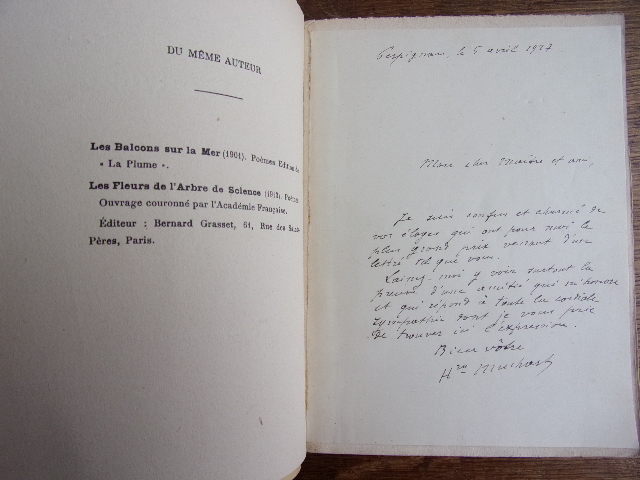 DU MÊME AUTEUR
Les Balcons sur la Mer (1901). Poèmes Edition de
« La Plume ».
Les Fleurs de l'Arbre de Science (1913). Poèmes
Ouvrage couronné par l'Académie Française.
Éditeur : Bernard Grasset, 61, Rue des Saints-
Pères, Paris.
Perpignan, le 5 avril 1927
Mon cher Maître et ami,
Je suis confus et charmé de
vos éloges qui ont pour moi le
plus grand prix venant d'un
lettré tel que vous.
Laissez-moi y voir surtout la
preuve d'une amitié qui m'honore
et qui répond à toute la cordiale
sympathie dont je vous prie
de trouver ici l'expression.
Bien vôtre
Hri Muchart